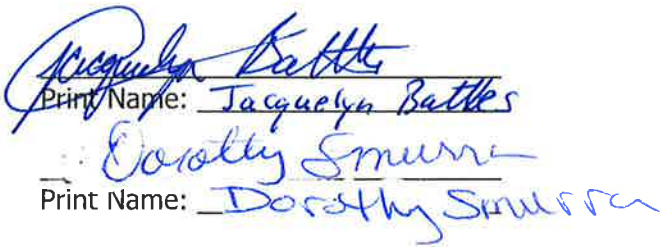 Jacquelyn Battles
Print Name: Jacquelyn Battles
Dorothy Smurra
Print Name: Dorothy Smurra